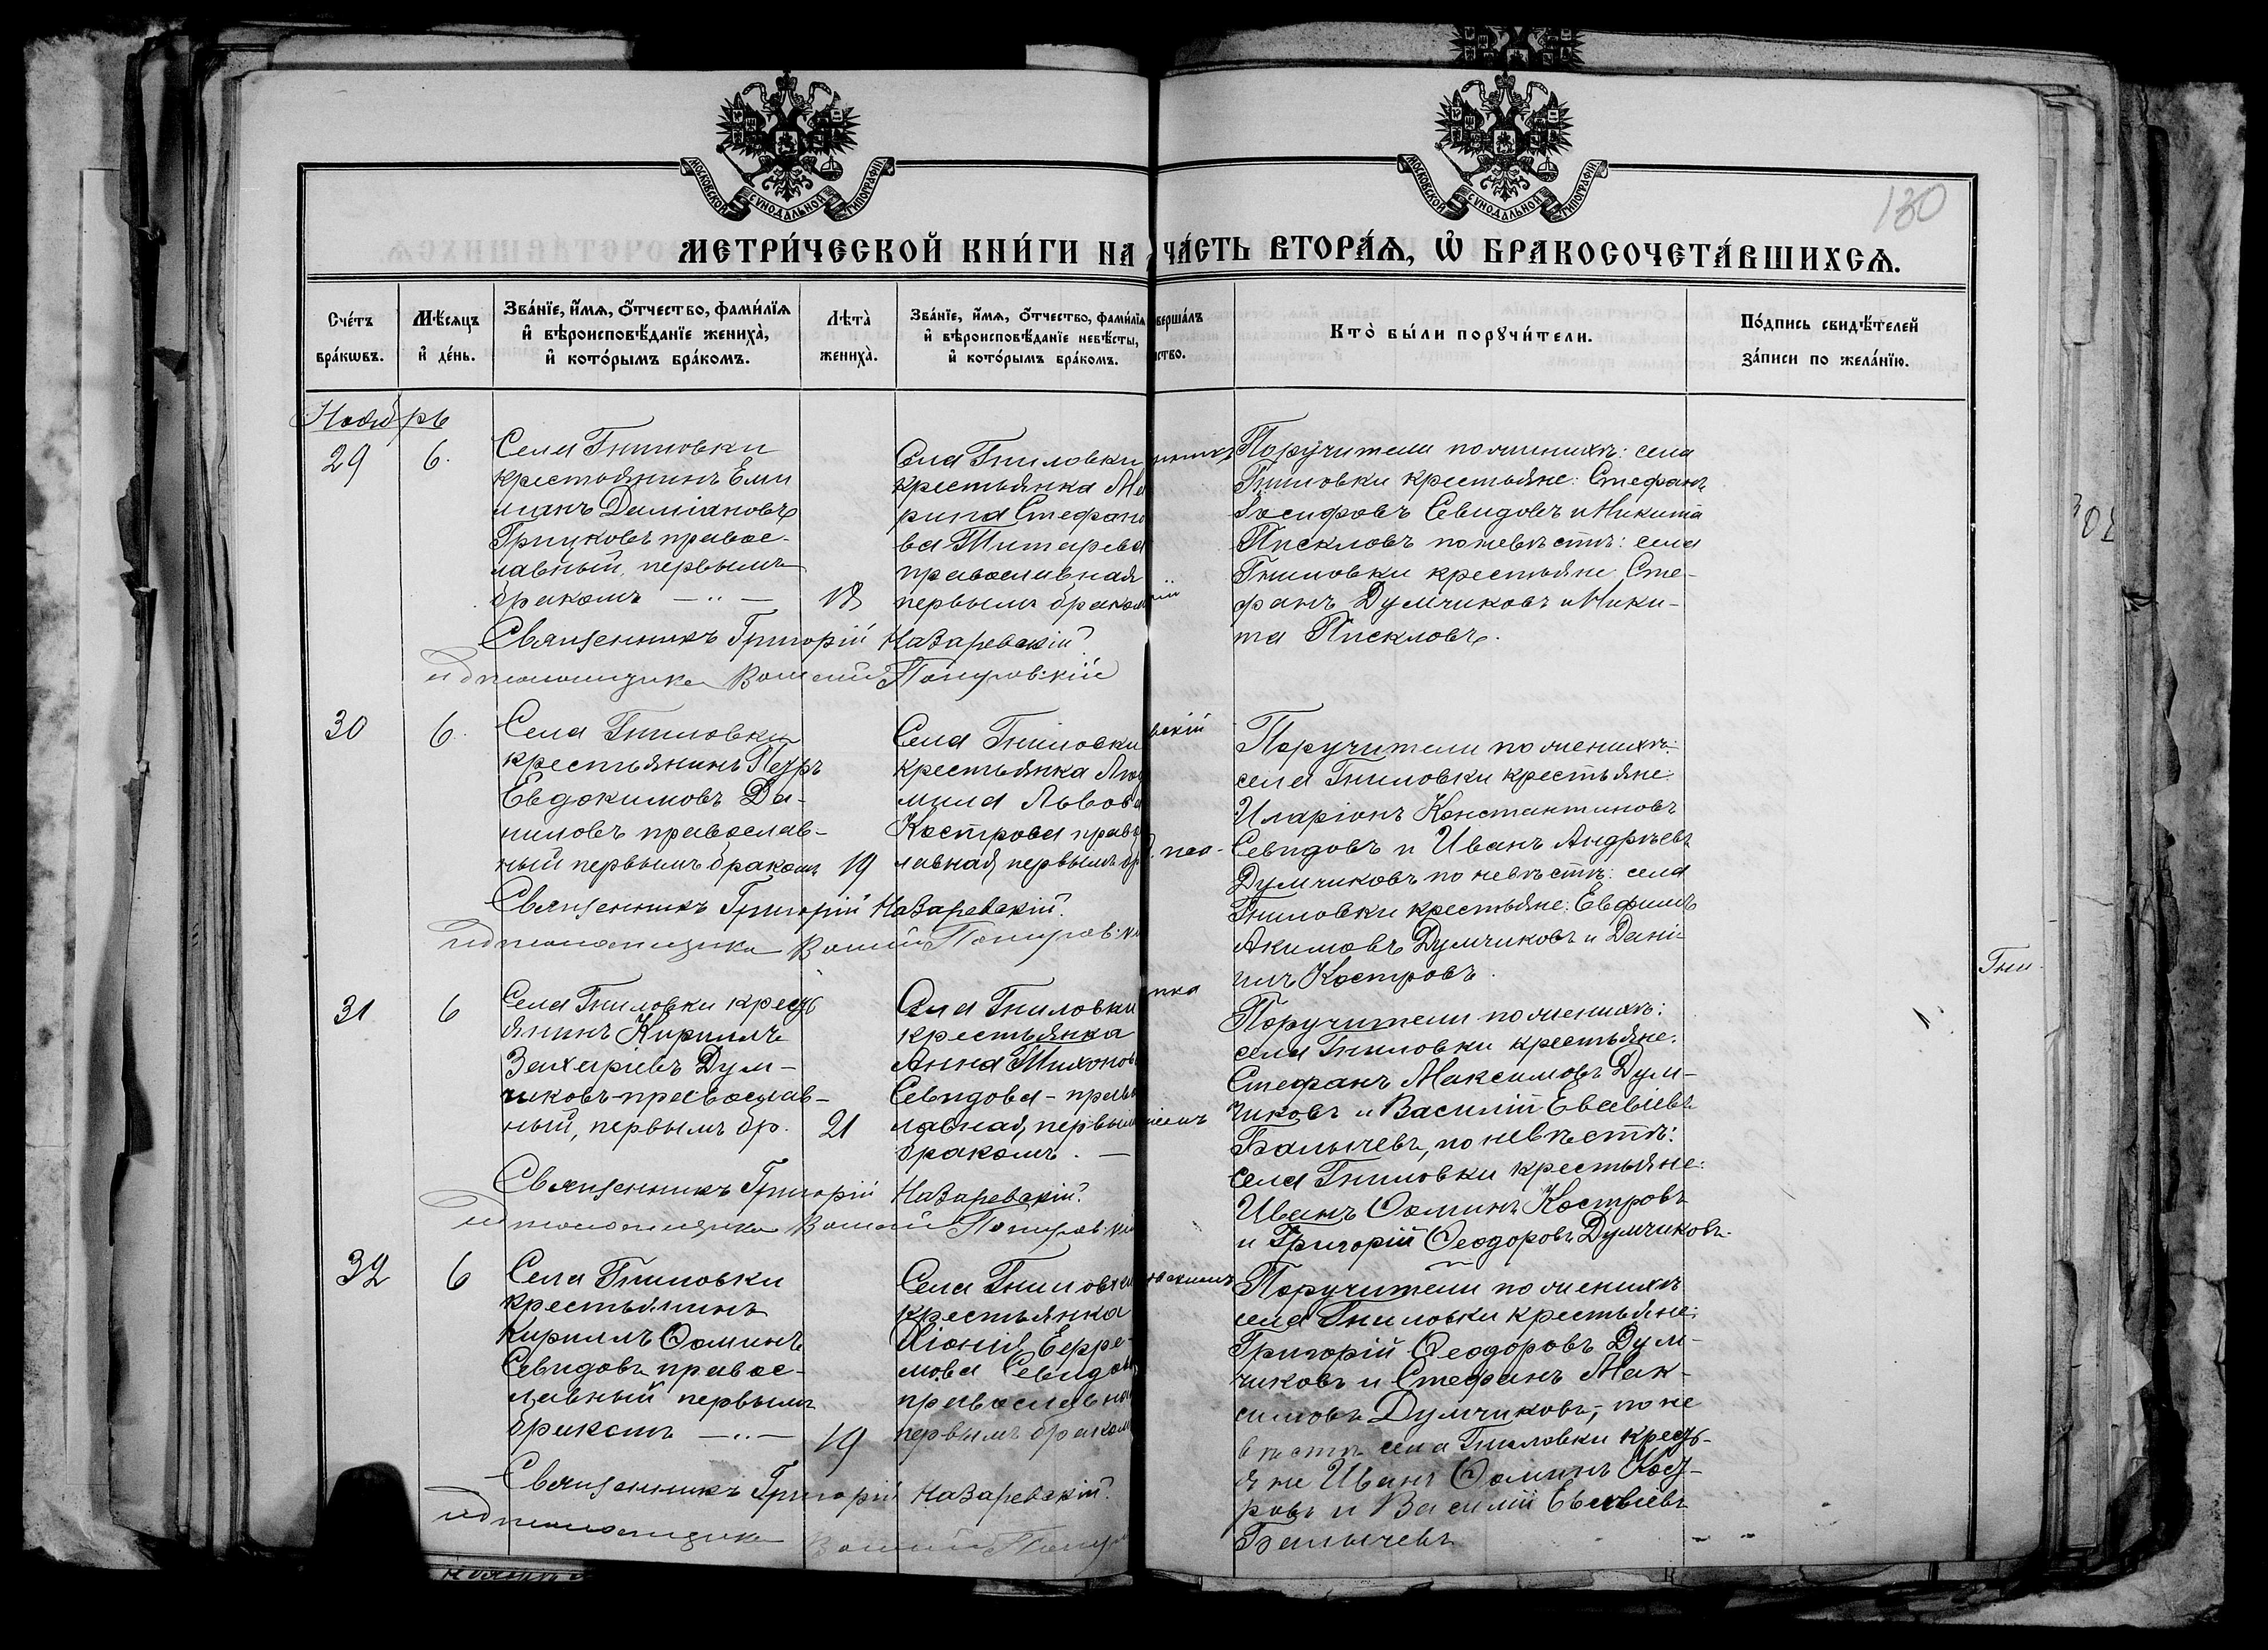 МОСКОВСКОЙ СѴНОДАЛЬНОЙ ТИПОГРАФІИ.
МОСКОВСКОЙ СѴНОДАЛЬНОЙ ТИПОГРАФІИ.
130
МЕТРИ́ЧЕСКОЙ КНИ́ГИ НА
ЧА́СТЬ ВТОРА́Ѧ, Ѡ҆ БРАКОСОЧЕТА́ВШИХСѦ.
Сче́тъ
бра́кѡвъ.
Мѣ́сѧцъ
и҆ де́нь.
Зва́нїе, и҆́мѧ, ѻ҆́тчество, фами́лїѧ
и҆ вѣроисповѣ́данїе жениха̀,
и҆ кото́рымъ бра́комъ.
Лѣта̀
жениха̀.
Зва́нїе, и҆́мѧ, ѻ҆́тчество, фами́лїѧ
и҆ вѣроисповѣ́данїе невѣ́сты,
и҆ кото́рымъ бра́комъ.
верша́лъ
нство.
Кто̀ бы́ли порꙋчи́тели.
По́дпись свидѣ́телей
за́писи по жела́нїю.
Ноябрь
29
6.
Села Гниловки
крестьянинъ Еми
лианъ Даміановъ
Грицковъ правос-
лавный, первымъ
бракомъ — „ —
18
Села Гниловки
крестьянка Ма
рина Стефано
ва Титарева
православная
первымъ браком
Поручители по женихѣ: села
Гниловки крестьяне: Стефанъ
Іосифовъ Севидовъ и Никита
Пискловъ по невѣстѣ: села
Гниловки крестьяне Сте-
фанъ Думчиковъ и Ники-
та Пискловъ.
Священникъ Григорій Назаревскій.
30
6.
Села Гниловки
крестьянинъ Петръ
Евдокимовъ Да-
ниловъ православ-
ный первымъ бракомъ
19
Села Гниловки
крестьянка Люд
мила Львова
Кострова право
лавная, первымъ бр
вскій
пса-
Поручители по женихѣ:
села Гниловки крестьяне:
Иларіонъ Константиновъ
Севидовъ и Иванъ Андреевъ
Думчиковъ по невѣстѣ: села
Гниловки крестьяне: Евфимъ
Акимовъ Думчиковъ и Дані-
илъ Костровъ.
Священникъ Григорій Назаревскій.
Гни-
31
6
Села Гниловки кресть
янинъ Кириллъ
Захаріевъ Дум-
чиковъ православ-
ный, первымъ бр.
21
Села Гниловки
крестьянка
Анна Тихонов
Севидова - право
лавная, первым
бракомъ. —
Поручители по женихѣ:
села Гниловки крестьяне:
Стефанъ Максимовъ Дум-
чиковъ и Василій Евсевіевъ
Балычевъ, по невѣстѣ:
села Гниловки крестьяне:
Иванъ Ѳоминъ Костровъ
и Григорій Ѳеодоровъ Думчиковъ.
Священникъ Григорій Назаревскій.
32
6
Села Гниловки
крестьянинъ
Кириллъ Ѳоминъ
Севидовъ правос-
лавный первымъ
бракомъ — „ —
19
Села Гниловки
крестьянка
Хіонія Ефре-
мова Севидов
православна
первымъ браком
Поручители по женихѣ
села Гниловки крестьяне:
Григорій Ѳеодоровъ Дум-
чиковъ и Стефанъ Мак-
симовъ Думчиковъ, по не
вѣстѣ села Гниловки кресть-
яне Иванъ Ѳоминъ Кост-
ровъ и Василій Евсевіевъ
Балычевъ
Священникъ Григорій Назаревскій.